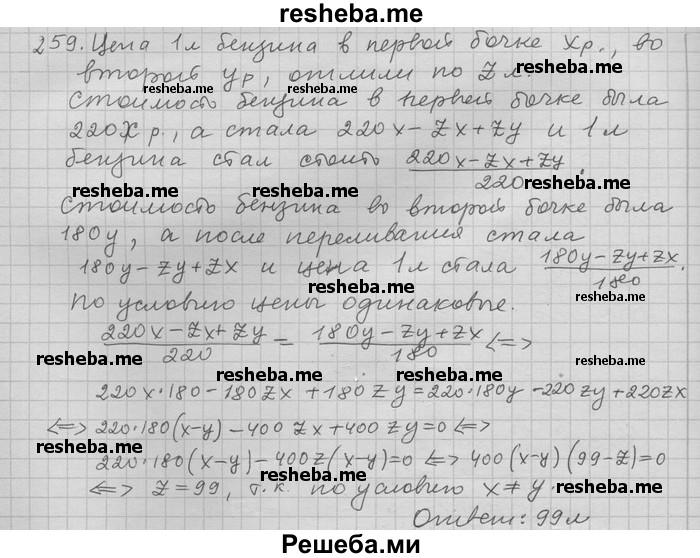 resheba.me
259. Цена 1л бензина в первой бочке xр., во
второй yр, отлили по z л.
resheba.me resheba.me resheba.me
Стоимость бензина в первой бочке была
220x р., а стала 220x - zx + zy и 1л
бензина стал стоить (220x - zx + zy)/220.
resheba.me resheba.me resheba.me
Стоимость бензина во второй бочке была
180y, а после переливания стала
resheba.me resheba.me resheba.me
180y - zy + zx и цена 1л стала (180y - zy + zx)/180.
По условию цены одинаковые.
resheba.me resheba.me resheba.me
(220x - zx + zy)/220 = (180y - zy + zx)/180 <=>
resheba.me resheba.me resheba.me
220x·180 - 180zx + 180zy = 220·180y - 220zy + 220zx
<=> 220·180(x-y) - 400zx + 400zy = 0 <=>
resheba.me resheba.me resheba.me
220·180(x-y) - 400z(x-y) = 0 <=> 400(x-y)(99-z) = 0
<=> z = 99, т.к. по условию x ≠ y.
resheba.me resheba.me resheba.me
Ответ: 99л
Решеба.ми